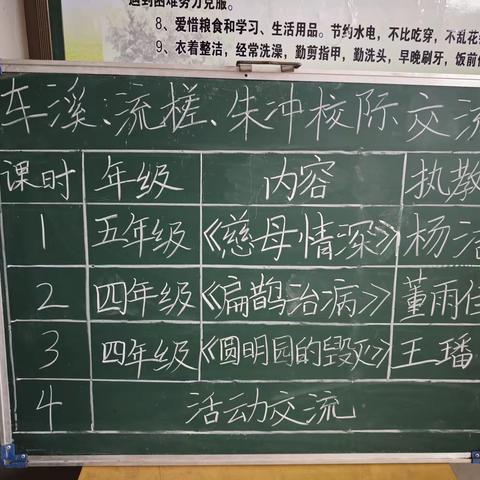 遇到困难努力克服。
8、爱惜粮食和学习、生活用品。节约水电，不比吃穿，不乱花
9、衣着整洁，经常洗澡，勤剪指甲，勤洗头，早晚刷牙，饭前
车溪、流槎、朱冲校际交流
课时 年级 内容 执教
1 五年级 《慈母情深》 杨洁
2 四年级 《扁鹊治病》 董雨佳
3 四年级 《圆明园的毁灭》 王璠
4 活动交流